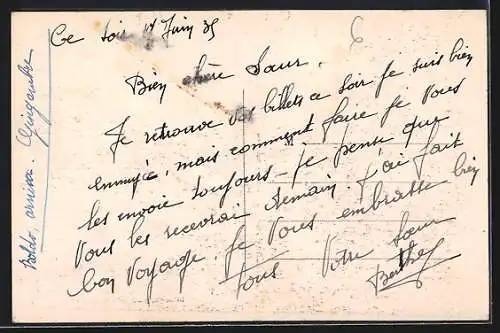 Ce soir 17 Juin 35
Bien chère Sœur,
Je retrouve vos billets ce soir je suis bien
ennuyée, mais comment faire je vous
les envoie toujours je pense que
vous les recevrai demain. J'ai fait
bon voyage. Je vous embrasse bien
tous Votre Sœur
Berthe
Guingamp